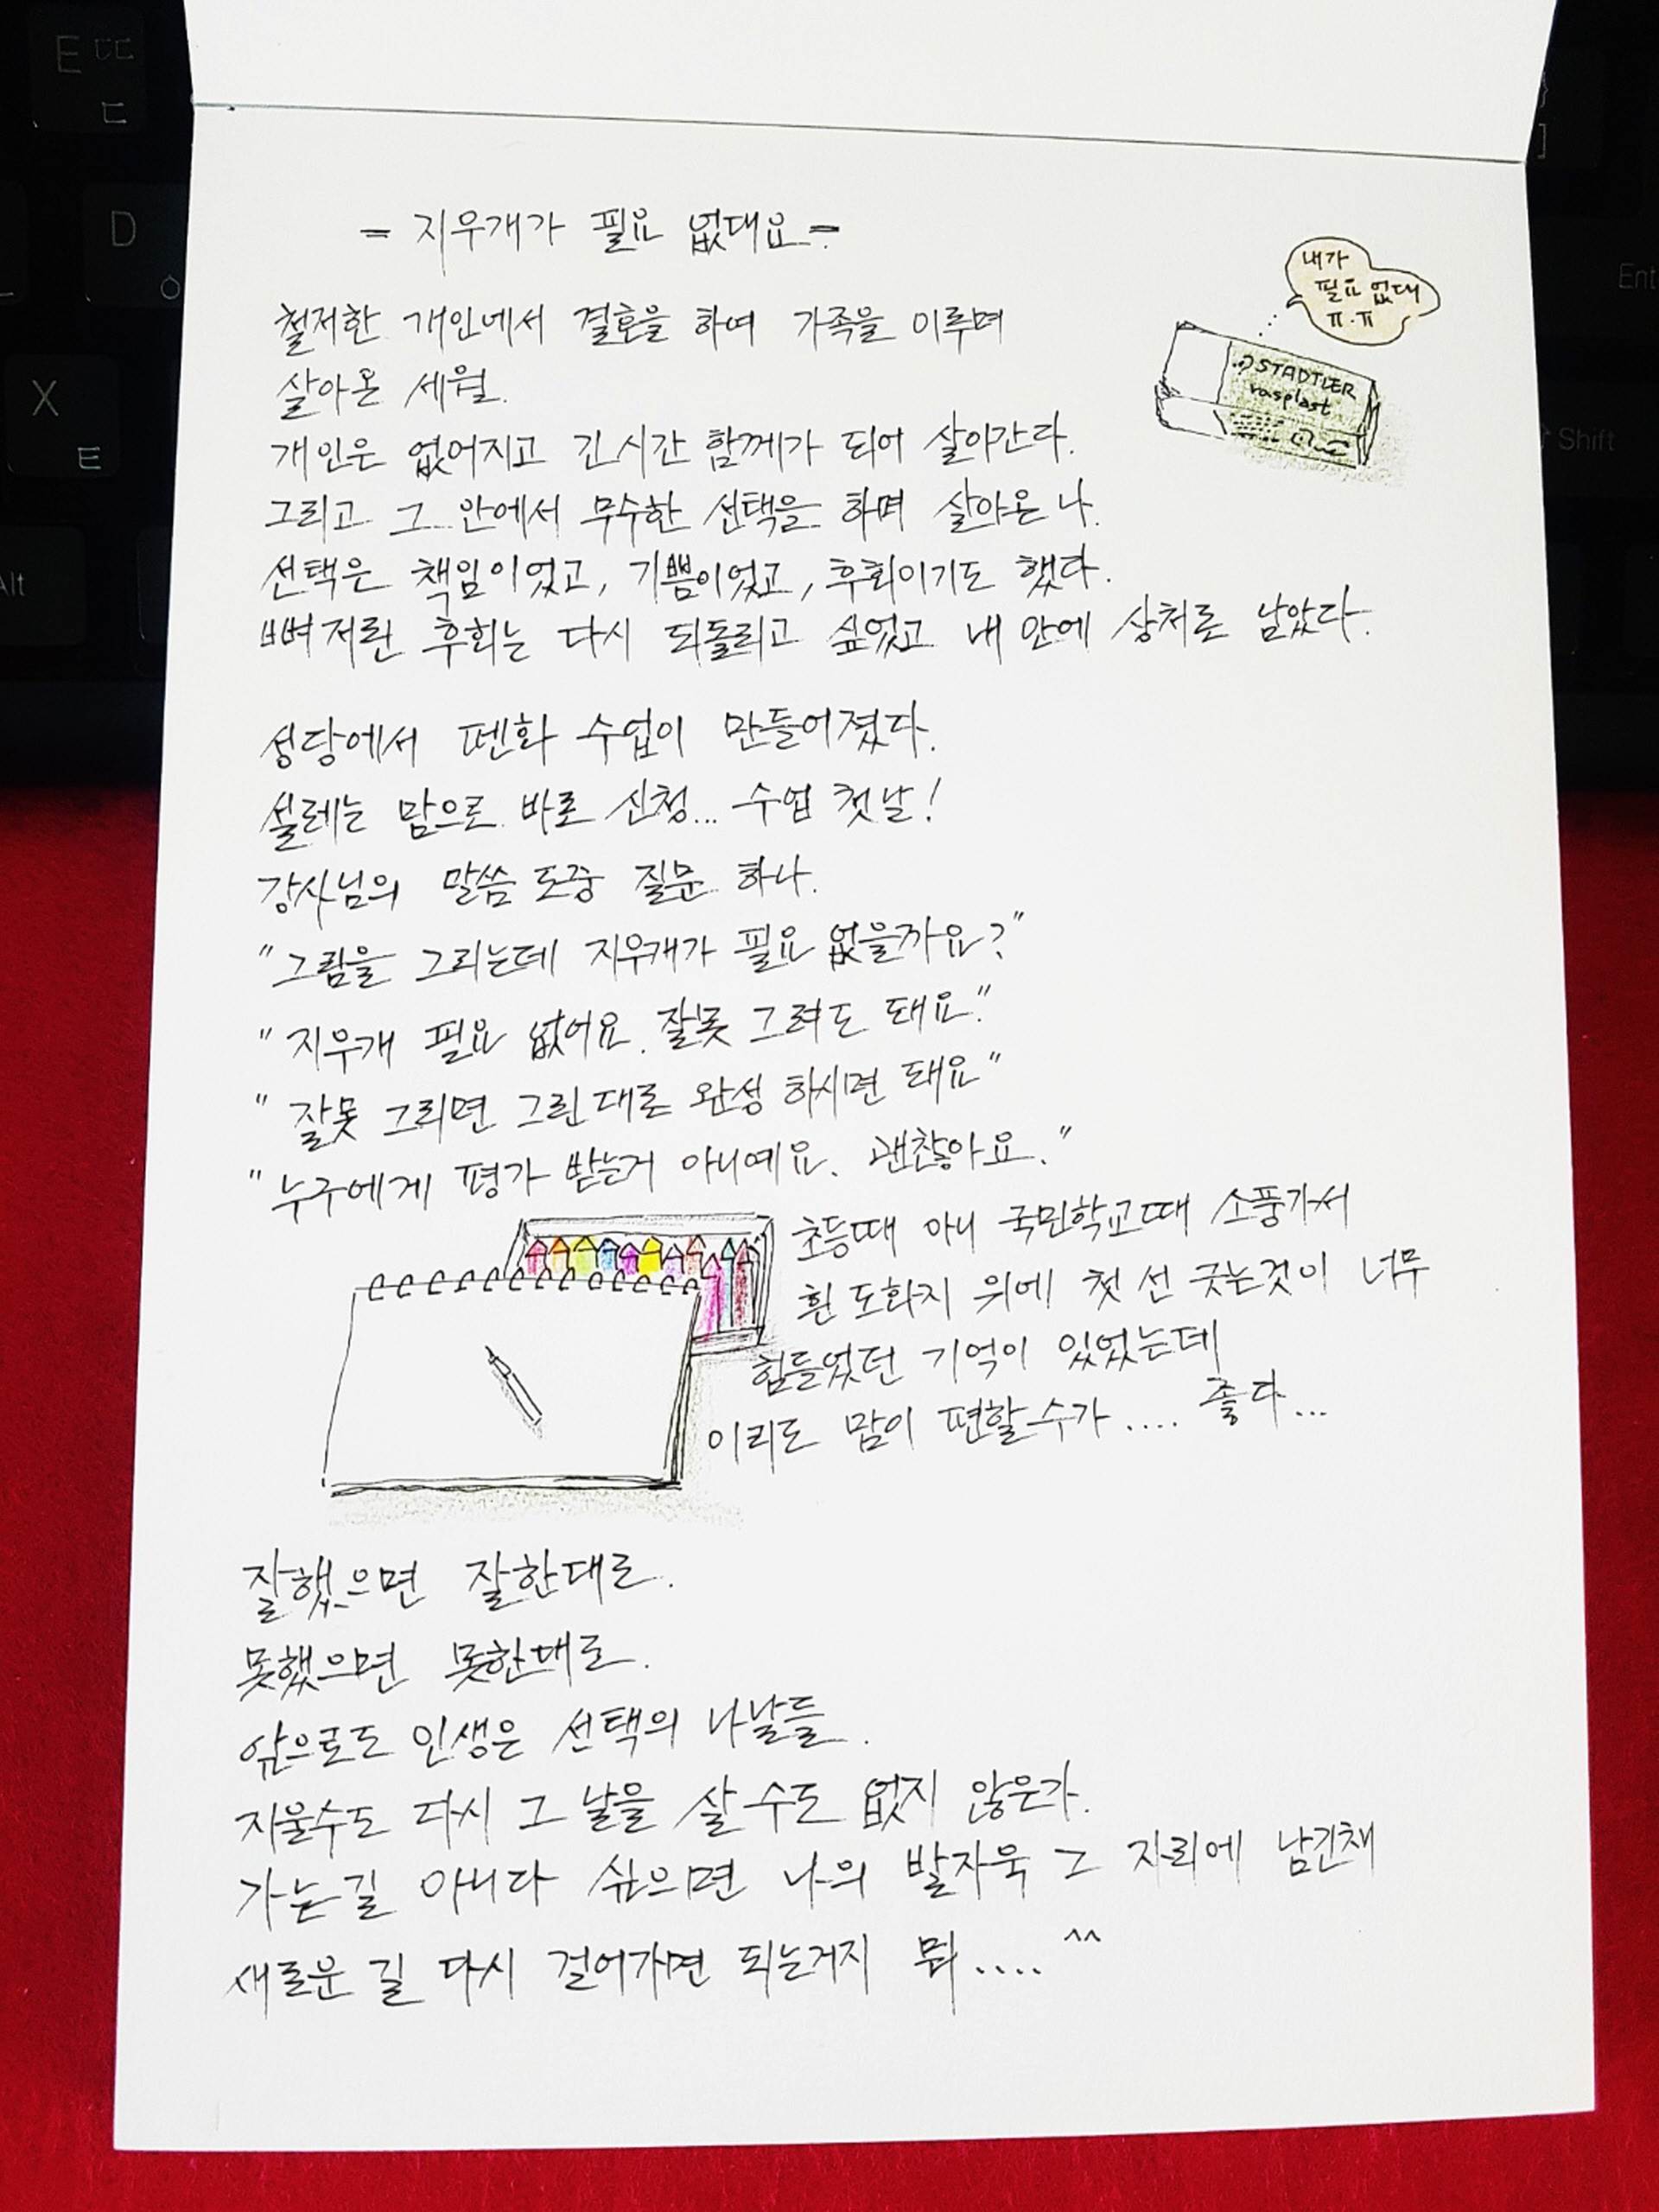 - 지우개가 필요 없대요 -
내가
필요 없대
ㅠ.ㅠ
STADTLER
rasplast
철저한 개인에서 결혼을 하여 가족을 이루며
살아온 세월.
개인은 없어지고 긴시간 함께가 되어 살아간다.
그리고 그 안에서 무수한 선택을 하며 살아온 나.
선택은 책임이었고, 기쁨이었고, 후회이기도 했다.
뼈저린 후회는 다시 되돌리고 싶었고 내 안에 상처로 남았다.
성당에서 펜화 수업이 만들어졌다.
설레는 맘으로 바로 신청... 수업 첫날!
강사님의 말씀 도중 질문 하나.
"그림을 그리는데 지우개가 필요 없을까요?"
"지우개 필요 없어요. 잘못 그려도 돼요."
"잘못 그리면 그린대로 완성 하시면 돼요"
"누구에게 평가 받는거 아니예요. 괜찮아요."
초등때 아니 국민학교때 소풍가서
흰 도화지 위에 첫 선 긋는것이 너무
힘들었던 기억이 있었는데
이리도 맘이 편할수가.... 좋다...
잘했으면 잘한대로.
못했으면 못한대로.
앞으로도 인생은 선택의 나날들.
지울수도 다시 그 날을 살 수도 없지 않은가.
가는길 아니다 싶으면 나의 발자욱 그 자리에 남긴채
새로운 길 다시 걸어가면 되는거지 뭐.... ^^
E ㄸ
ㄷ
D
ㅇ
X
ㅌ
Alt
}
]
Ent
Shift